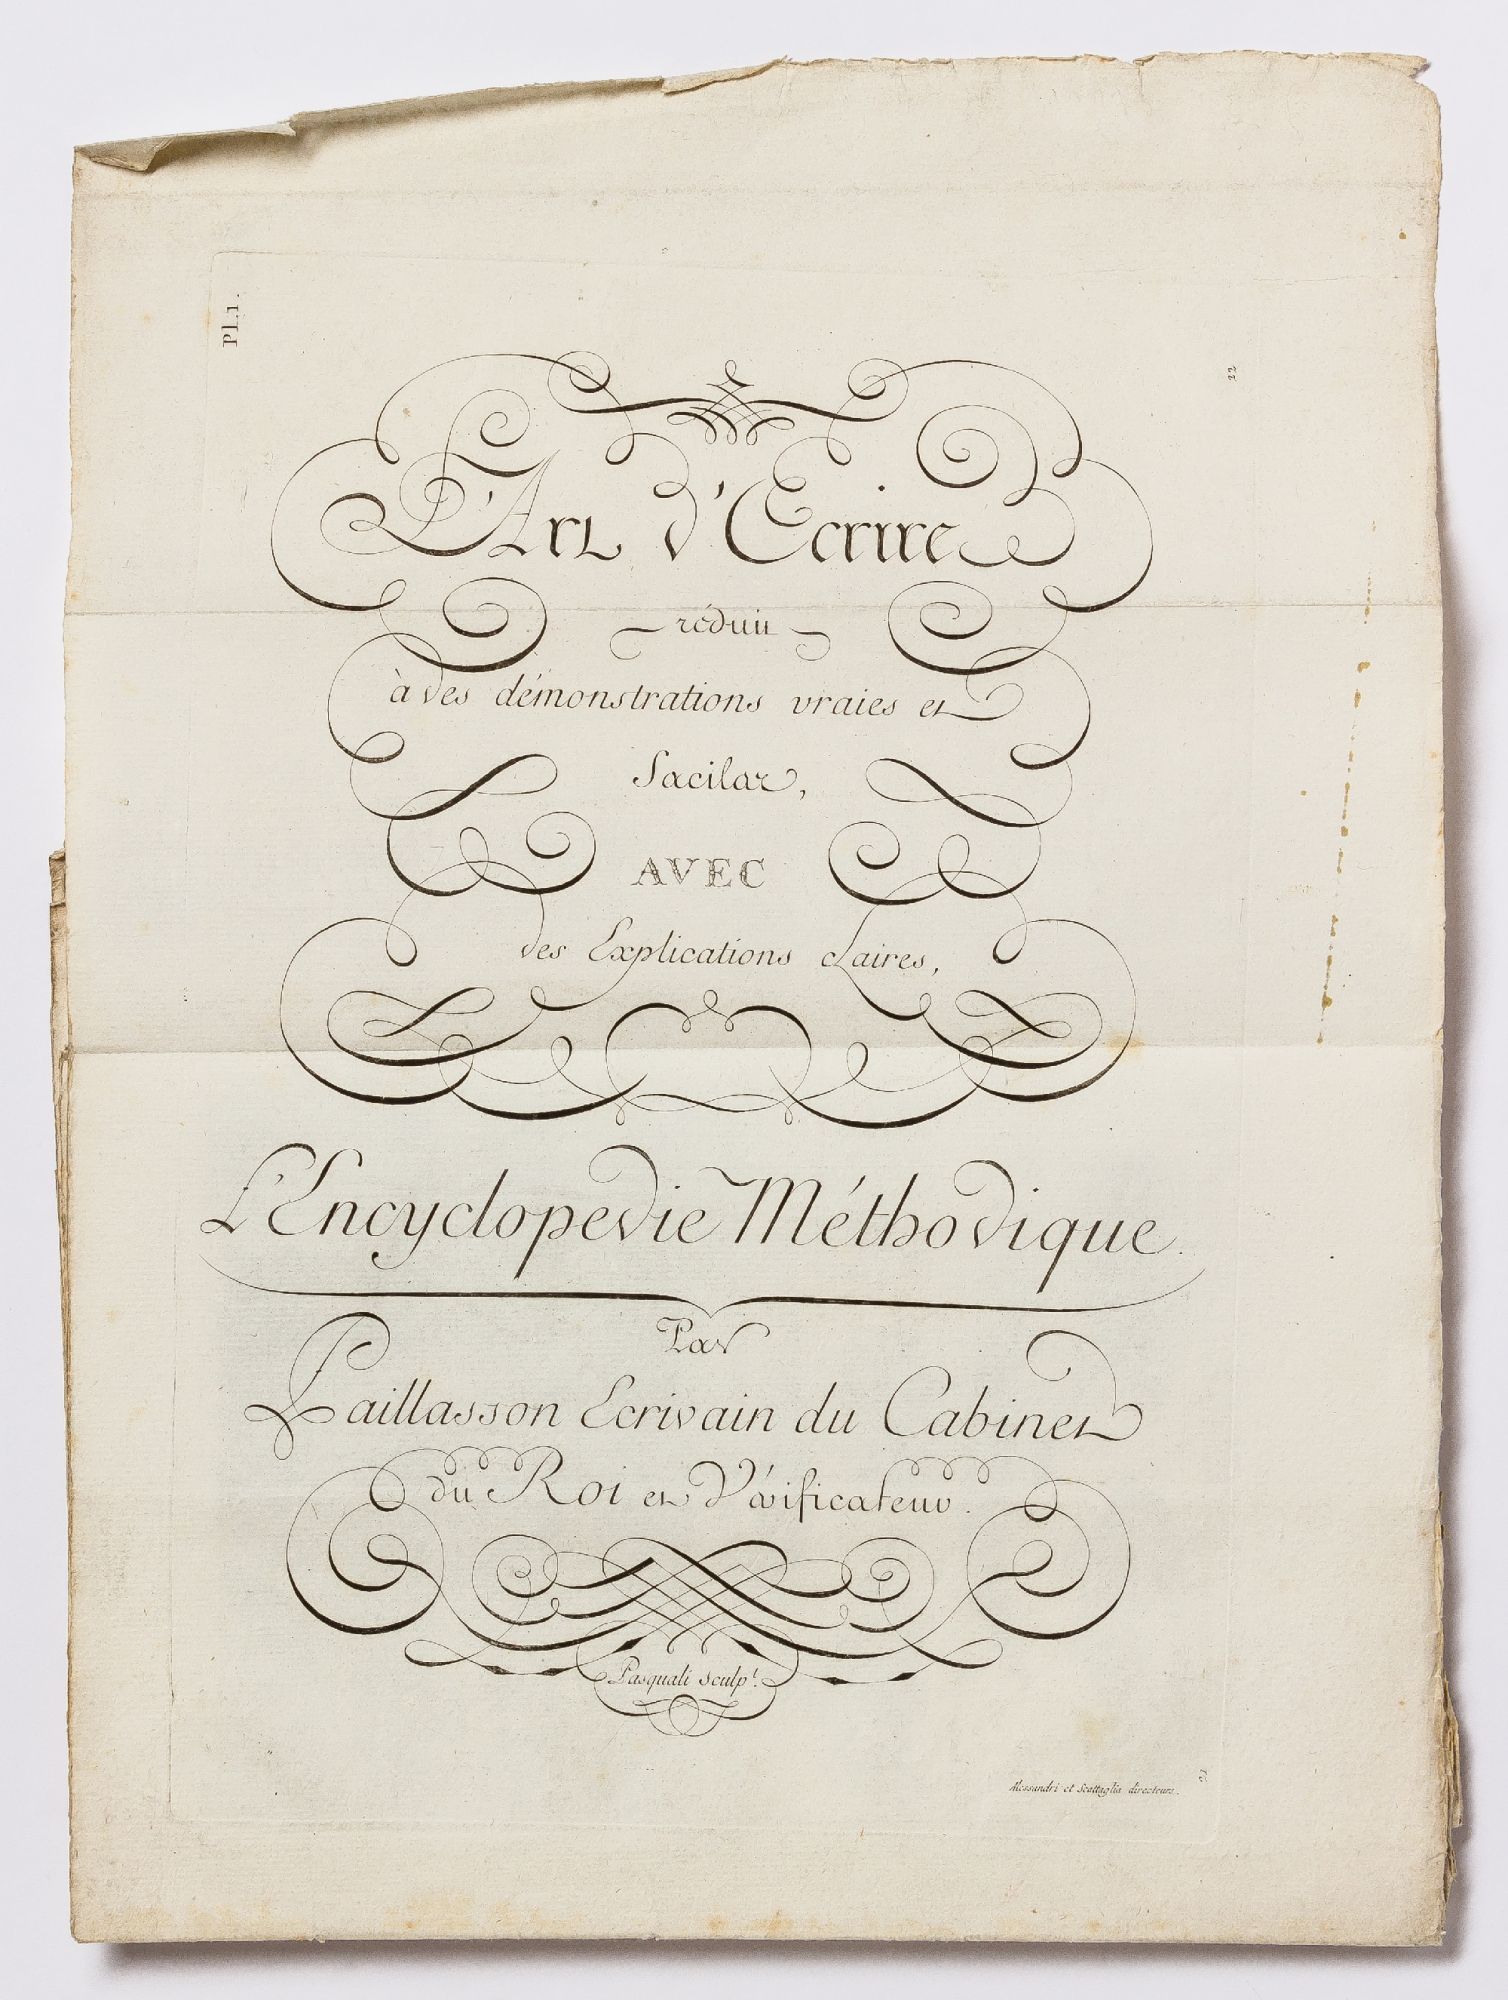 Pl. 1.
22
L'Art d'Ecrire
réduit
à des démonstrations vraies et
faciles,
AVEC
des Explications claires,
L'Encyclopedie Méthodique.
Par
Paillasson Ecrivain du Cabinet
du Roi et Vérificateur.
Pasquali sculpt.
Alessandri et Scattaglia directeurs.